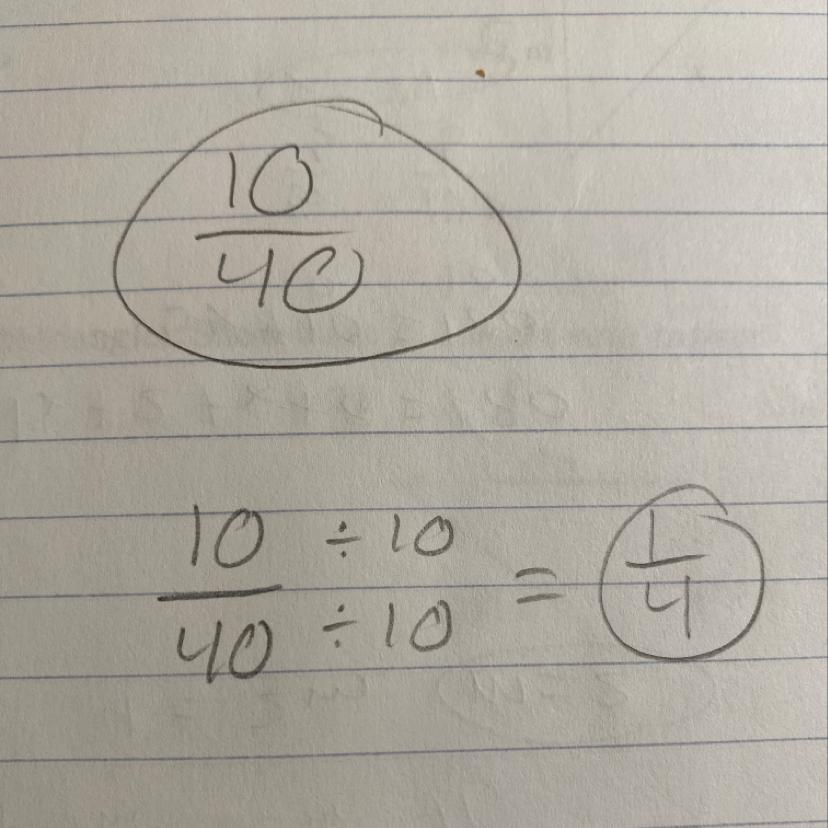 10
40
10 ÷ 10
40 ÷ 10
= 1
4